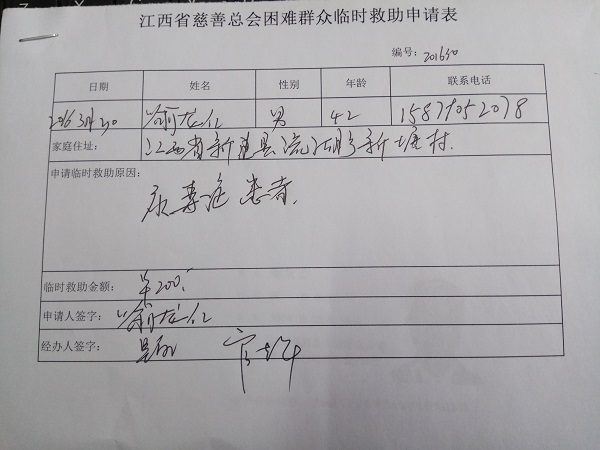 江西省慈善总会困难群众临时救助申请表
编号：201630
日期 姓名 性别 年龄 联系电话
2016 3月30 男 42 15879052078
家庭住址： 江西省新建县 新塘村.
申请临时救助原因：
尿毒症患者.
临时救助金额： 200.
申请人签字：
经办人签字：